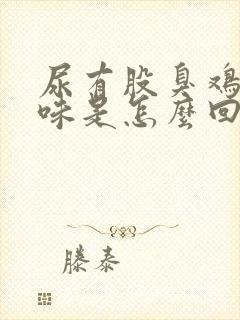 尿有股臭鸡
味是怎麼回
滕泰